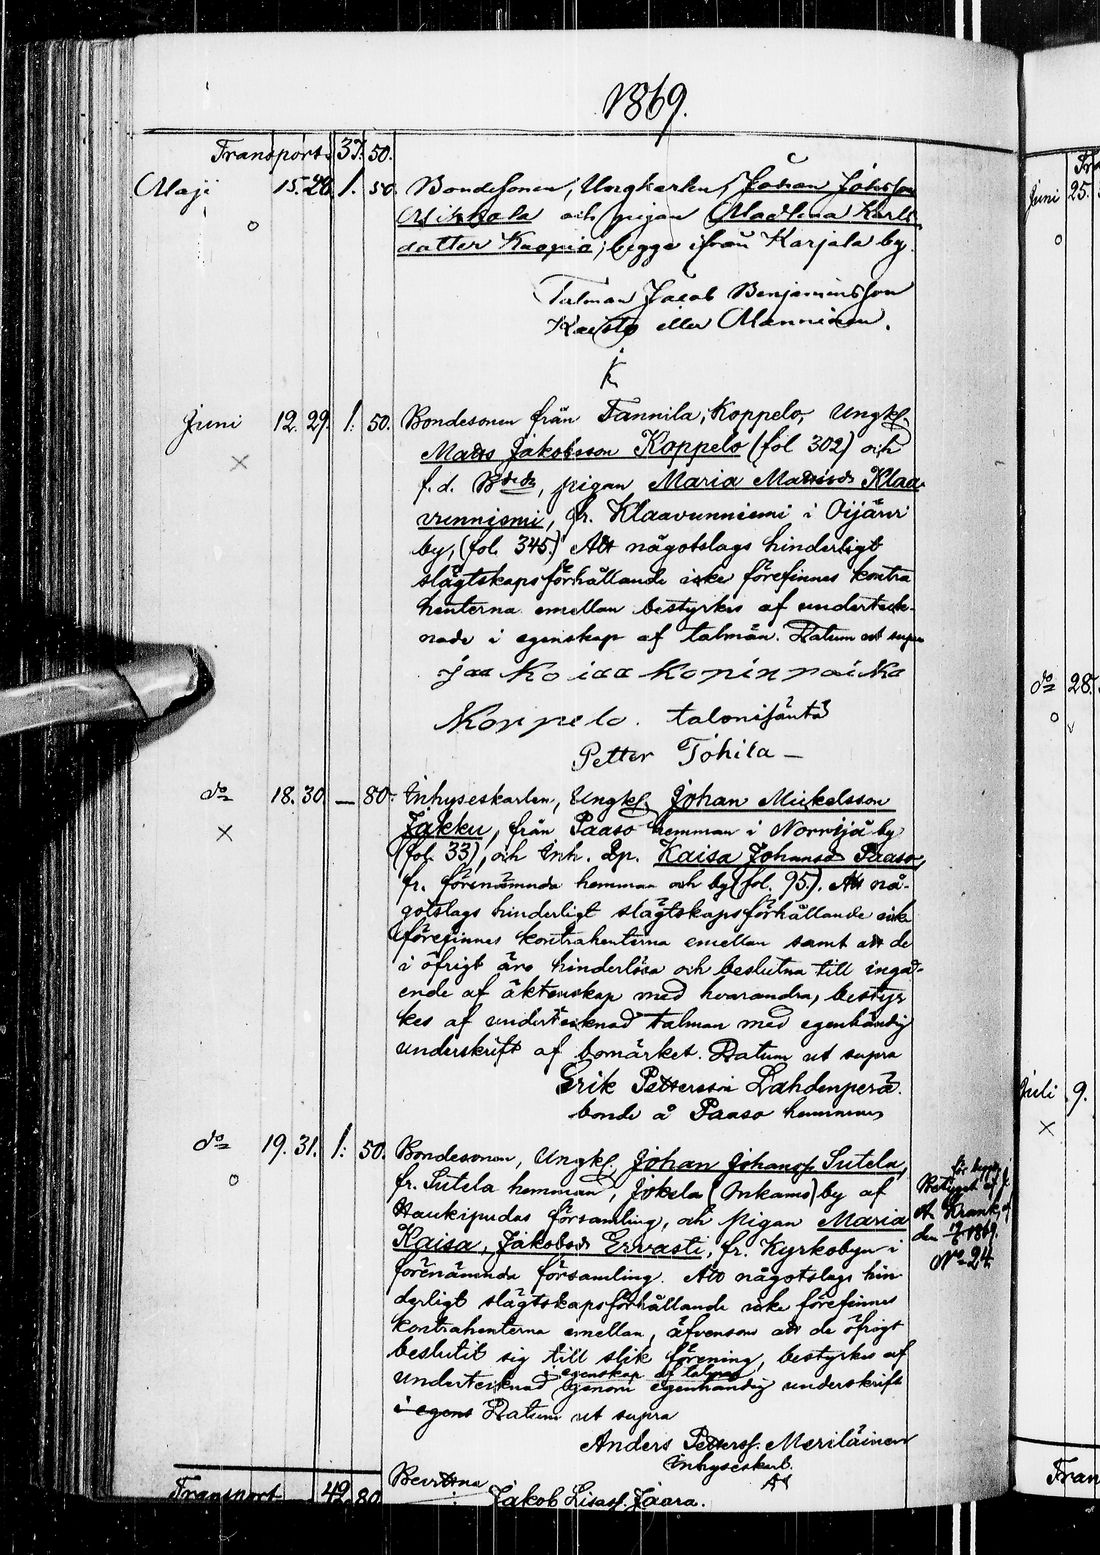 1869.
Transport. 37. 50.
Maji 15. 28. 1. 50. Bondesonen, Ungkarlen, Johan Johansson
och pigan Madlena Karls
datter Kuoppa, begge ifrån Karjala by.
Talman Jacob Benjaminsson
Kaisto eller Manninen.
K
Juni 12. 29. 1. 50. Bondesonen från Tannila, Koppelo, Ungkl.
× Matts Jakobsson Koppelo (fol 302) och
f. d. Bdedr, pigan Maria Mattsdr Klaa-
vunniemi, fr. Klaavunniemi i Oijärvi
by, (fol. 345.) Att någotslags hinderligt
slägtskapsförhållande icke förefinnes kontra
henterna emellan bestyrkes af underteck-
nade i egenskap af talmän. Datum ut supra
Koppelo. talonisäntä
Petter Tohila –
do 18. 30. — 80. Inhyseskarlen, Ungkl. Johan Mickelsson
× Jakku, från Paaso hemman i Norrijå by
(fol. 33), och Inh. Dr. Kaisa Johansd. Paaso,
fr. förenämnda hemman och by (fol. 95.). Att nå-
gotslags hinderligt slägtskapsförhållande icke
förefinnes kontrahenterna emellan samt att de
i öfrigt äro hinderlösa och beslutna till ingå-
ende af äktenskap med hvarandra, bestyr
kes af undertecknad talman med egenhändig
underskrift af bomärket. Datum ut supra
Erik Pettersson Lahdenperä.
bonde å Paaso hemman
do 19. 31. 1. 50. Bondesonen, Ungkl. Johan Johanss. Sutela,
fr. Sutela hemman, Jokela (Onkamo) by af
Haukipudas församling, och pigan Maria
Kaisa Jakobsd. Ervasti, fr. Kyrkobyn i
förenämnda församling. Att någotslags hin
derligt slägtskapsförhållande icke förefinnes
kontrahenterna emellan, äfvensom att de öfrigt
beslutit sig till slik förening, bestyrkes af
i egenskap af talman
undertecknad genom egenhändig underskrift
i egens Datum ut supra
Anders Petterss. Meriläinen
Inhyseskarl.
Bevittna
Jakob Lisass. Jaara.
Transport 49. 80.
för
Betyget af
A. Krank af
den 1869.
No 24.
Juni 25.
do 28.
Juli 9.
×
Tran